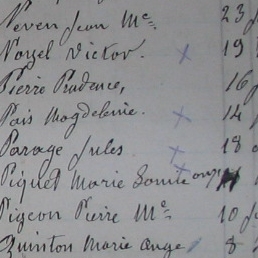 Neven Jean Me 23
Noyel Victor. x 19
Pierre Prudence, 16
Pois Magdeleine. x 14
Parage Jules x 18
Piquet Marie Louise x
Pigeon Pierre Me 10
Quinton Marie Ange 8